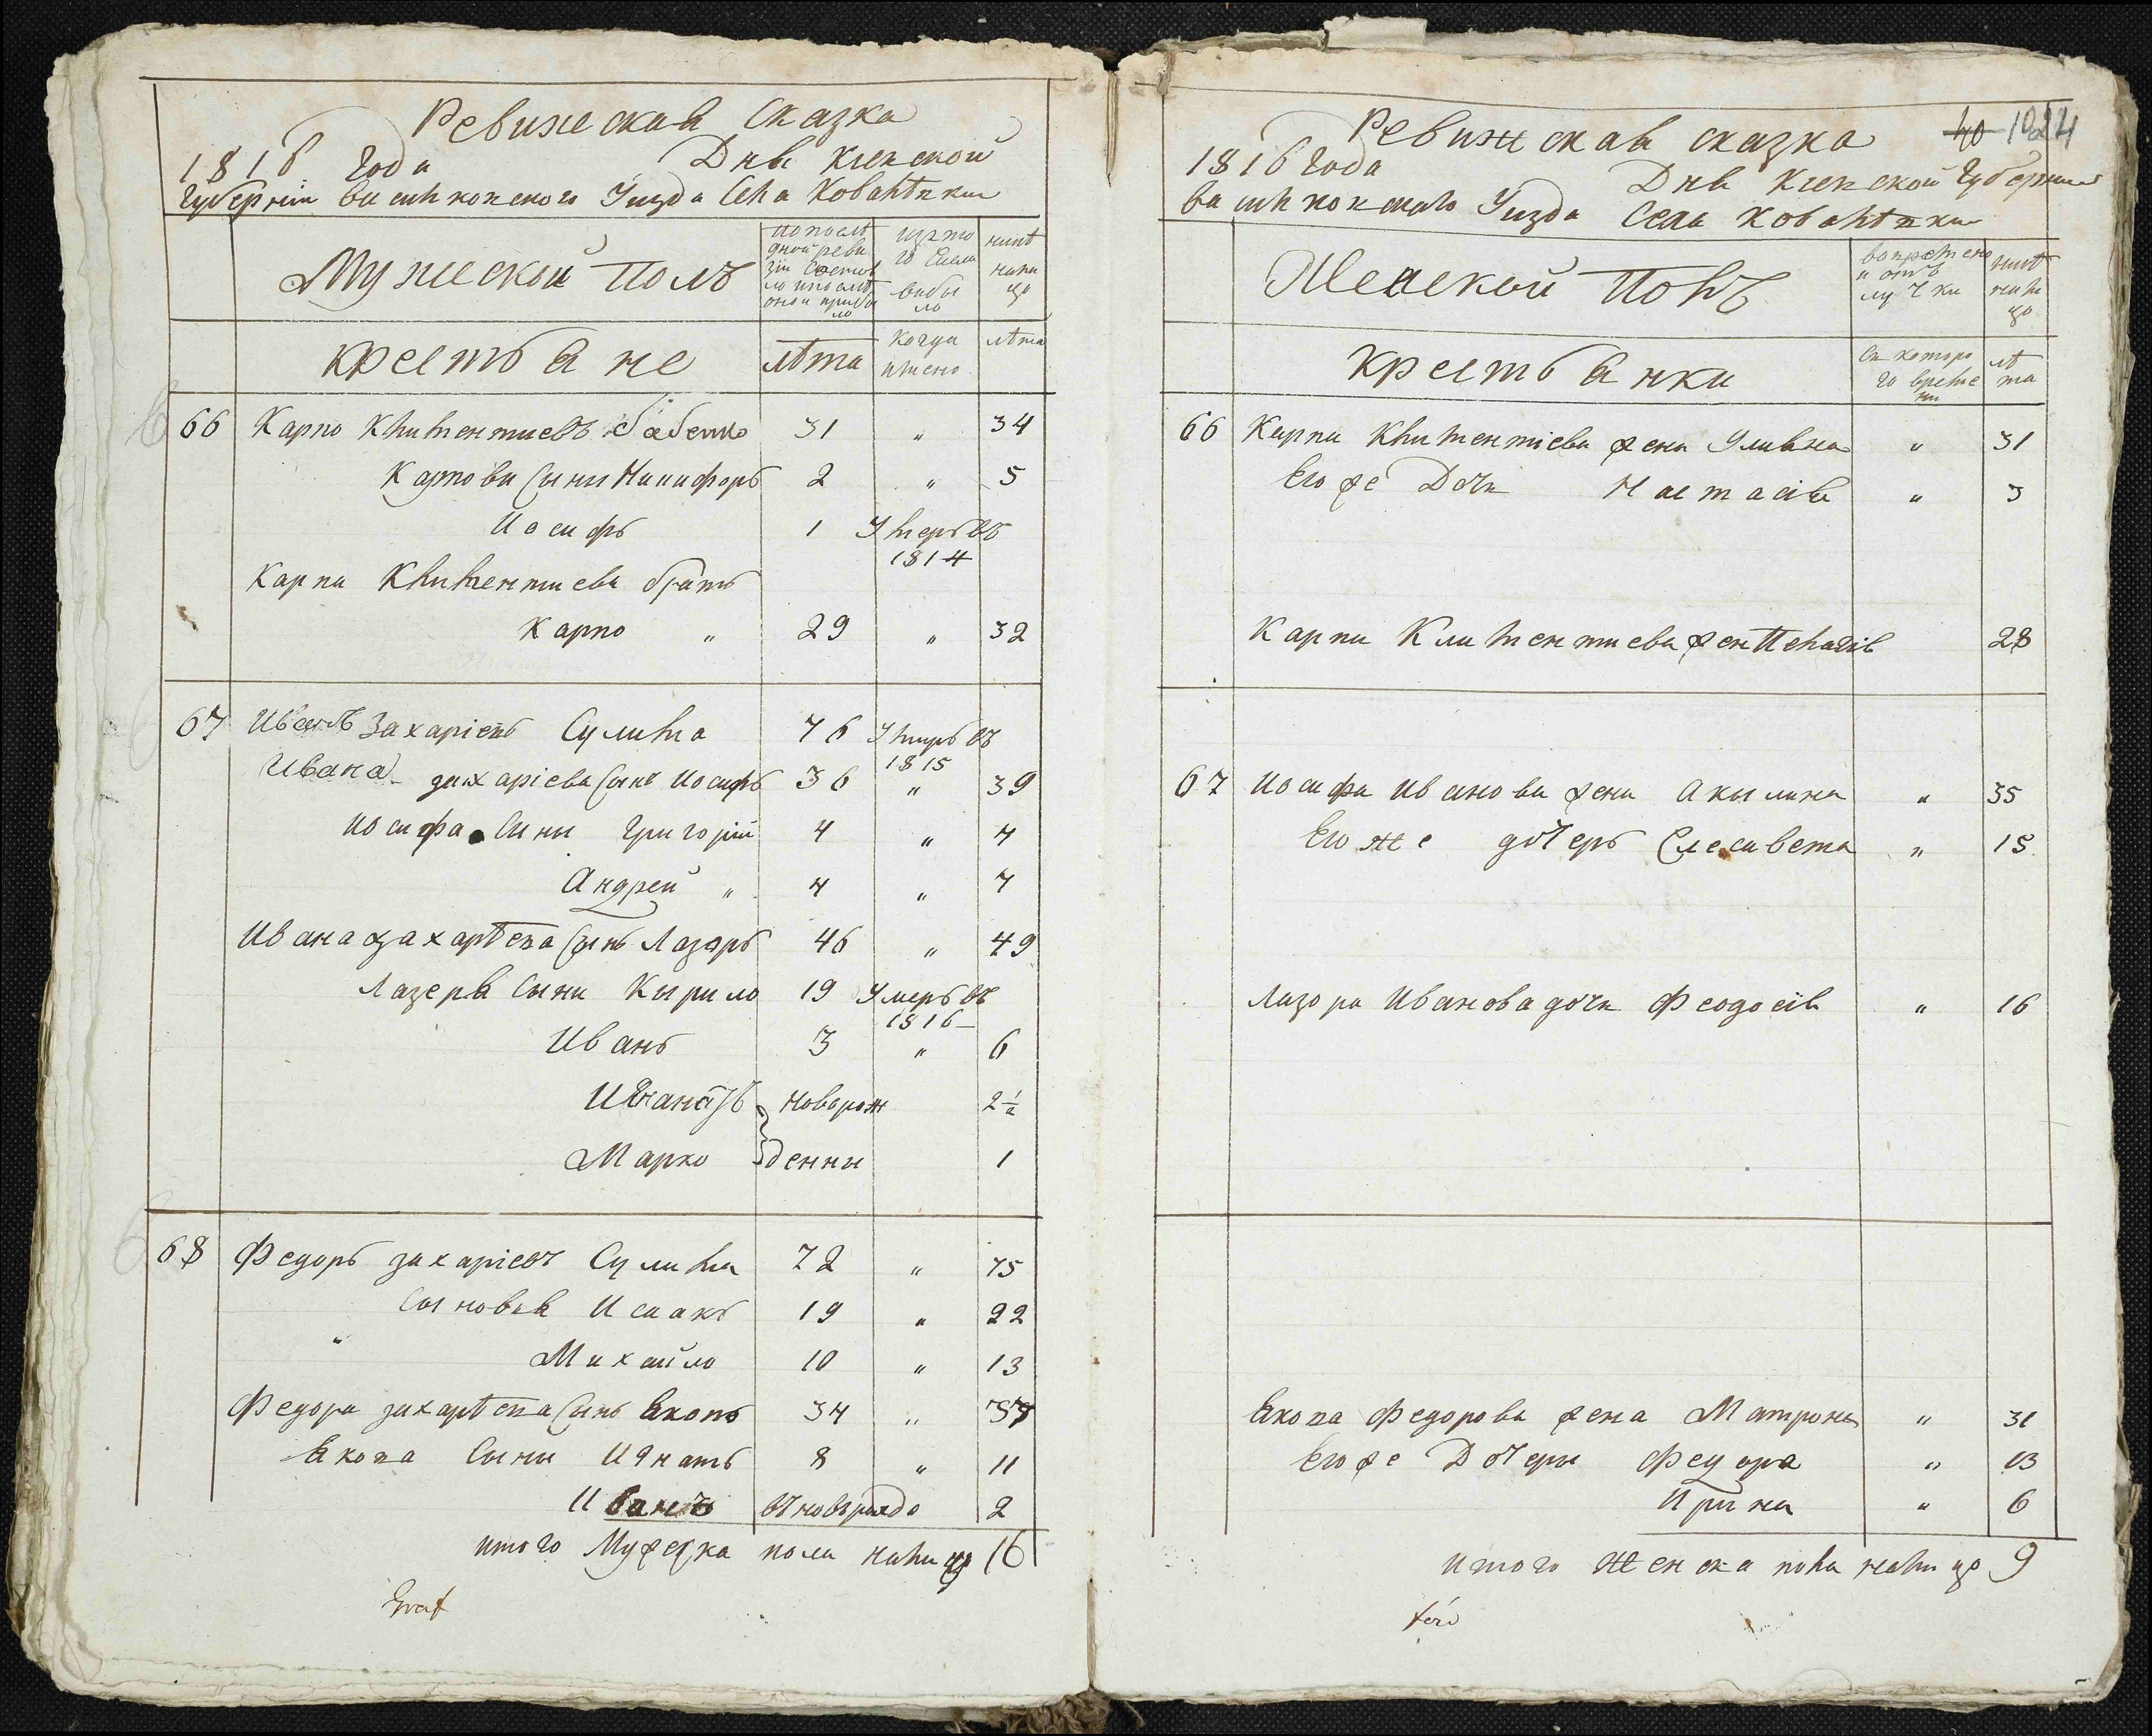 Ревижская Сказка
1816 Года Дня Киевской
Губернии Василковского Уизда Села Ковалѣвки
Мужеской Полъ
по послѣ
дной реви
зіи состоя
ло и послѣ
оной прибы
ло
изъ то
го числа
выбы
ло
нинѣ
нали
цо
крестьяне
лѣта
когда
имено
лѣта
66 Карпо Климентиевъ Бабенко 31 " 34
Карпови Сыни Никифоръ 2 " 5
Иосифъ 1 Умеръ въ
1814
Карпа Климентиева братъ
Карпо " 29 " 32
67 Иванъ Захаріевъ Сулима 76 Умеръ въ
1815
Ивана Захаріева Сынъ Иосифъ 36 " 39
Иосифа Сини Григорій 4 " 7
Андрей " 4 " 7
Ивана Захарѣева Сынъ Лазаръ 46 " 49
Лазера Сыни Кырило 19 Умеръ въ
1816
Иванъ 3 " 6
новорож 2 1/2
Марко денни 1
68 Федоръ Захаріевъ Сулима 72 " 75
Сыновья Исаакъ 19 " 22
" Михайло 10 " 13
Федора Захарѣева Сынъ Яковъ 34 " 37
Якова Сыни Игнатъ 8 " 11
Иванъ 2
итого Мужеска пола налицо 16
40 1024
Ревижская сказка
1816 Года Дня Киевской Губернии
Василковскаго Уизда Села Ковалѣвки
Женской Полъ
во времено
и отъ
лучки
нинѣ
нали
цо
Крестьянки
Съ которо
го време
ни
лѣ
та
66 Карпа Климентіева жена Улияна " 31
Его же Дочь Настасія " 3
Карпа Климентиева жен Пелагія 28
67 Иосифа Иванова жена Акылина " 35
Его же дочеръ Елесивета " 15
Лазора Иванова дочь Феодосія " 16
Якова Федорова жена Матрона " 31
Его же Дочеры Федора " 13
Ирина " 6
итого Женска пола налицо 9